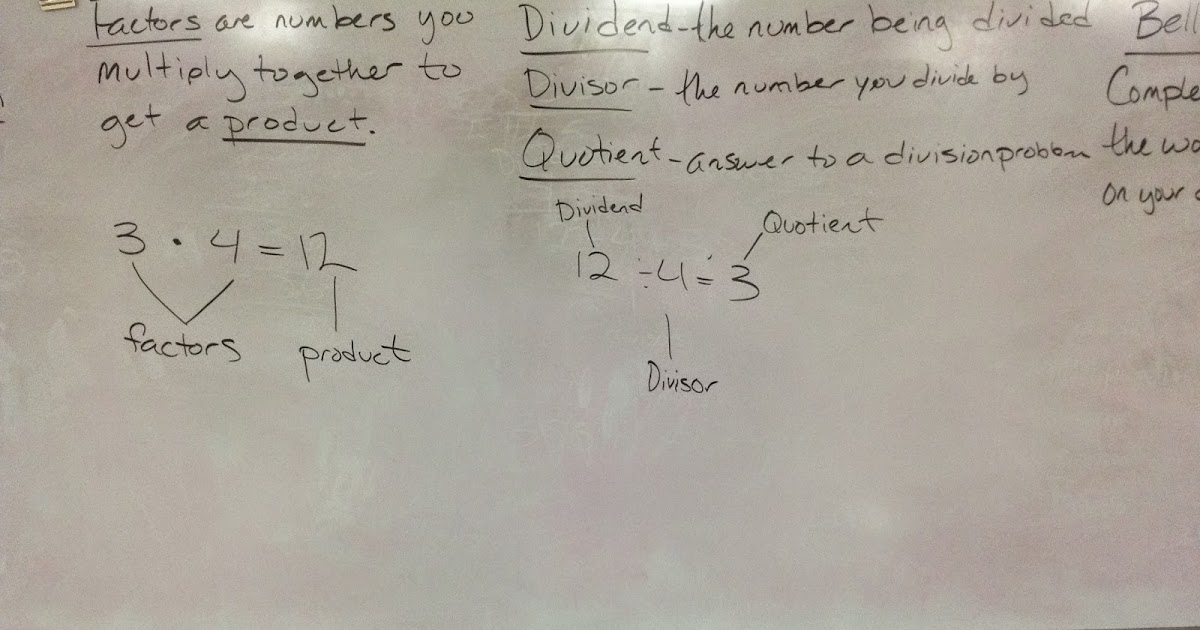 Factors are numbers you
multiply together to
get a product.
3 · 4 = 12
factors product
Dividend - the number being divided
Divisor - the number you divide by
Quotient - answer to a division problem
Dividend
Quotient
12 ÷ 4 = 3
Divisor
Bell
Comple
the wo
on your